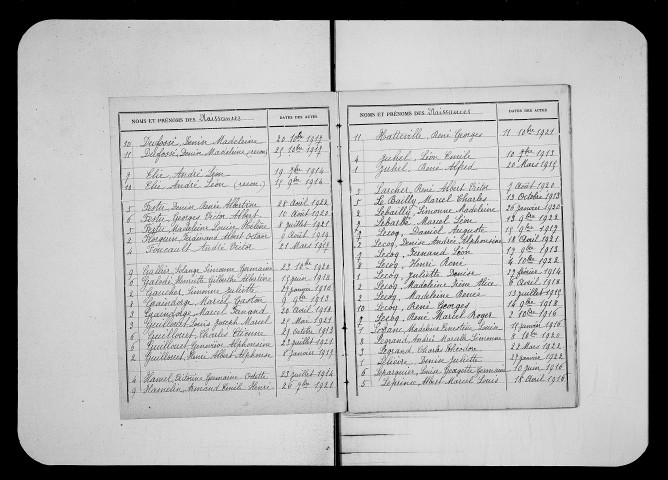 NOMS ET PRÉNOMS DES Naissances
DATES DES ACTES
10 Dufossé, Denise Madeleine 20 10bre 1917
11 Dufossé, Denise Madeleine (recon) 21 10bre 1917
9 Elie André Léon 19 7bre 1914
10 Elie André Léon (recon) 19 9bre 1914
5 Festu Denise Renée Albertine 28 Août 1922
6 Festu Georges Victor Albert 10 Août 1920
5 Festu Madeleine Louise 8 juillet 1921
7 Ferdinand Albert Octave 9 Août 1919
4 Foucault André Victor 21 Mars 1918
9 Solange Simonne Germaine 23 10bre 1920
6 Henriette Gilberte Albertine 15 juin 1918
2 Gaucher Simonne Juliette 27 janvier 1916
8 Graindorge Marcel Gaston 9 9bre 1913
3 Graindorge Marcel Fernand 20 Avril 1918
3 Guillouet Louis Joseph Marcel 21 Mai 1921
6 Guillouet Charles Etienne 21 octobre 1913
6 Guillouet Geneviève Alphonsine 23 juillet 1921
2 Guillouet, René Albert Alphonse 1 janvier 1919
4 Hamel Antoine Germaine Odette 23 juillet 1914
9 Hamelin Armand Emile Henri 26 7bre 1921
NOMS ET PRÉNOMS DES Naissances
DATES DES ACTES
11 Hatteville, René Georges 11 10bre 1921
4 Juhel, Léon Emile 10 7bre 1913
1 Juhel, René Alfred 20 Mars 1915
3 Larcher René Albert Victor 7 Août 1920
5 Le Bailly Marcel Charles 13 Octobre 1913
2 Lebailly Simonne Madeleine 26 janvier 1920
Marcel Léon 13 9bre 1922
Lecoq, Daniel Auguste 15 9bre 1917
2 Lecoq, Denise Andrée Alphonsine 18 Août 1921
9 Lecoq, Fernand Léon 17 9bre 1913
Lecoq, Henri René 4 10bre 1922
1 Lecoq, Juliette Denise 27 février 1914
2 Lecoq, Madeleine Irène Alice 6 Avril 1918
8 Lecoq, Madeleine Renée 13 juillet 1919
10 Lecoq, René Georges 14 9bre 1918
9 Lecoq, René Marcel Roger 2 10bre 1916
Madeleine Ernestine Louise 11 janvier 1916
8 Legrand, André Marcelle Simonne 8 10bre 1920
3 Legrand, Charles Théodore 22 Mars 1922
1 Denise Juliette 27 janvier 1922
6 Louise Georgette Germaine 10 juin 1916
5 Leprince Albert Marcel Louis 18 Avril 1916